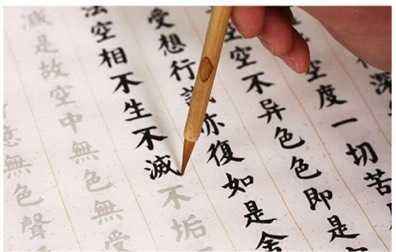 深
空度一切苦
空不异色色即是
受想行識亦復如是舍
法空相不生不滅不垢
是故空中無色無受
無色聲